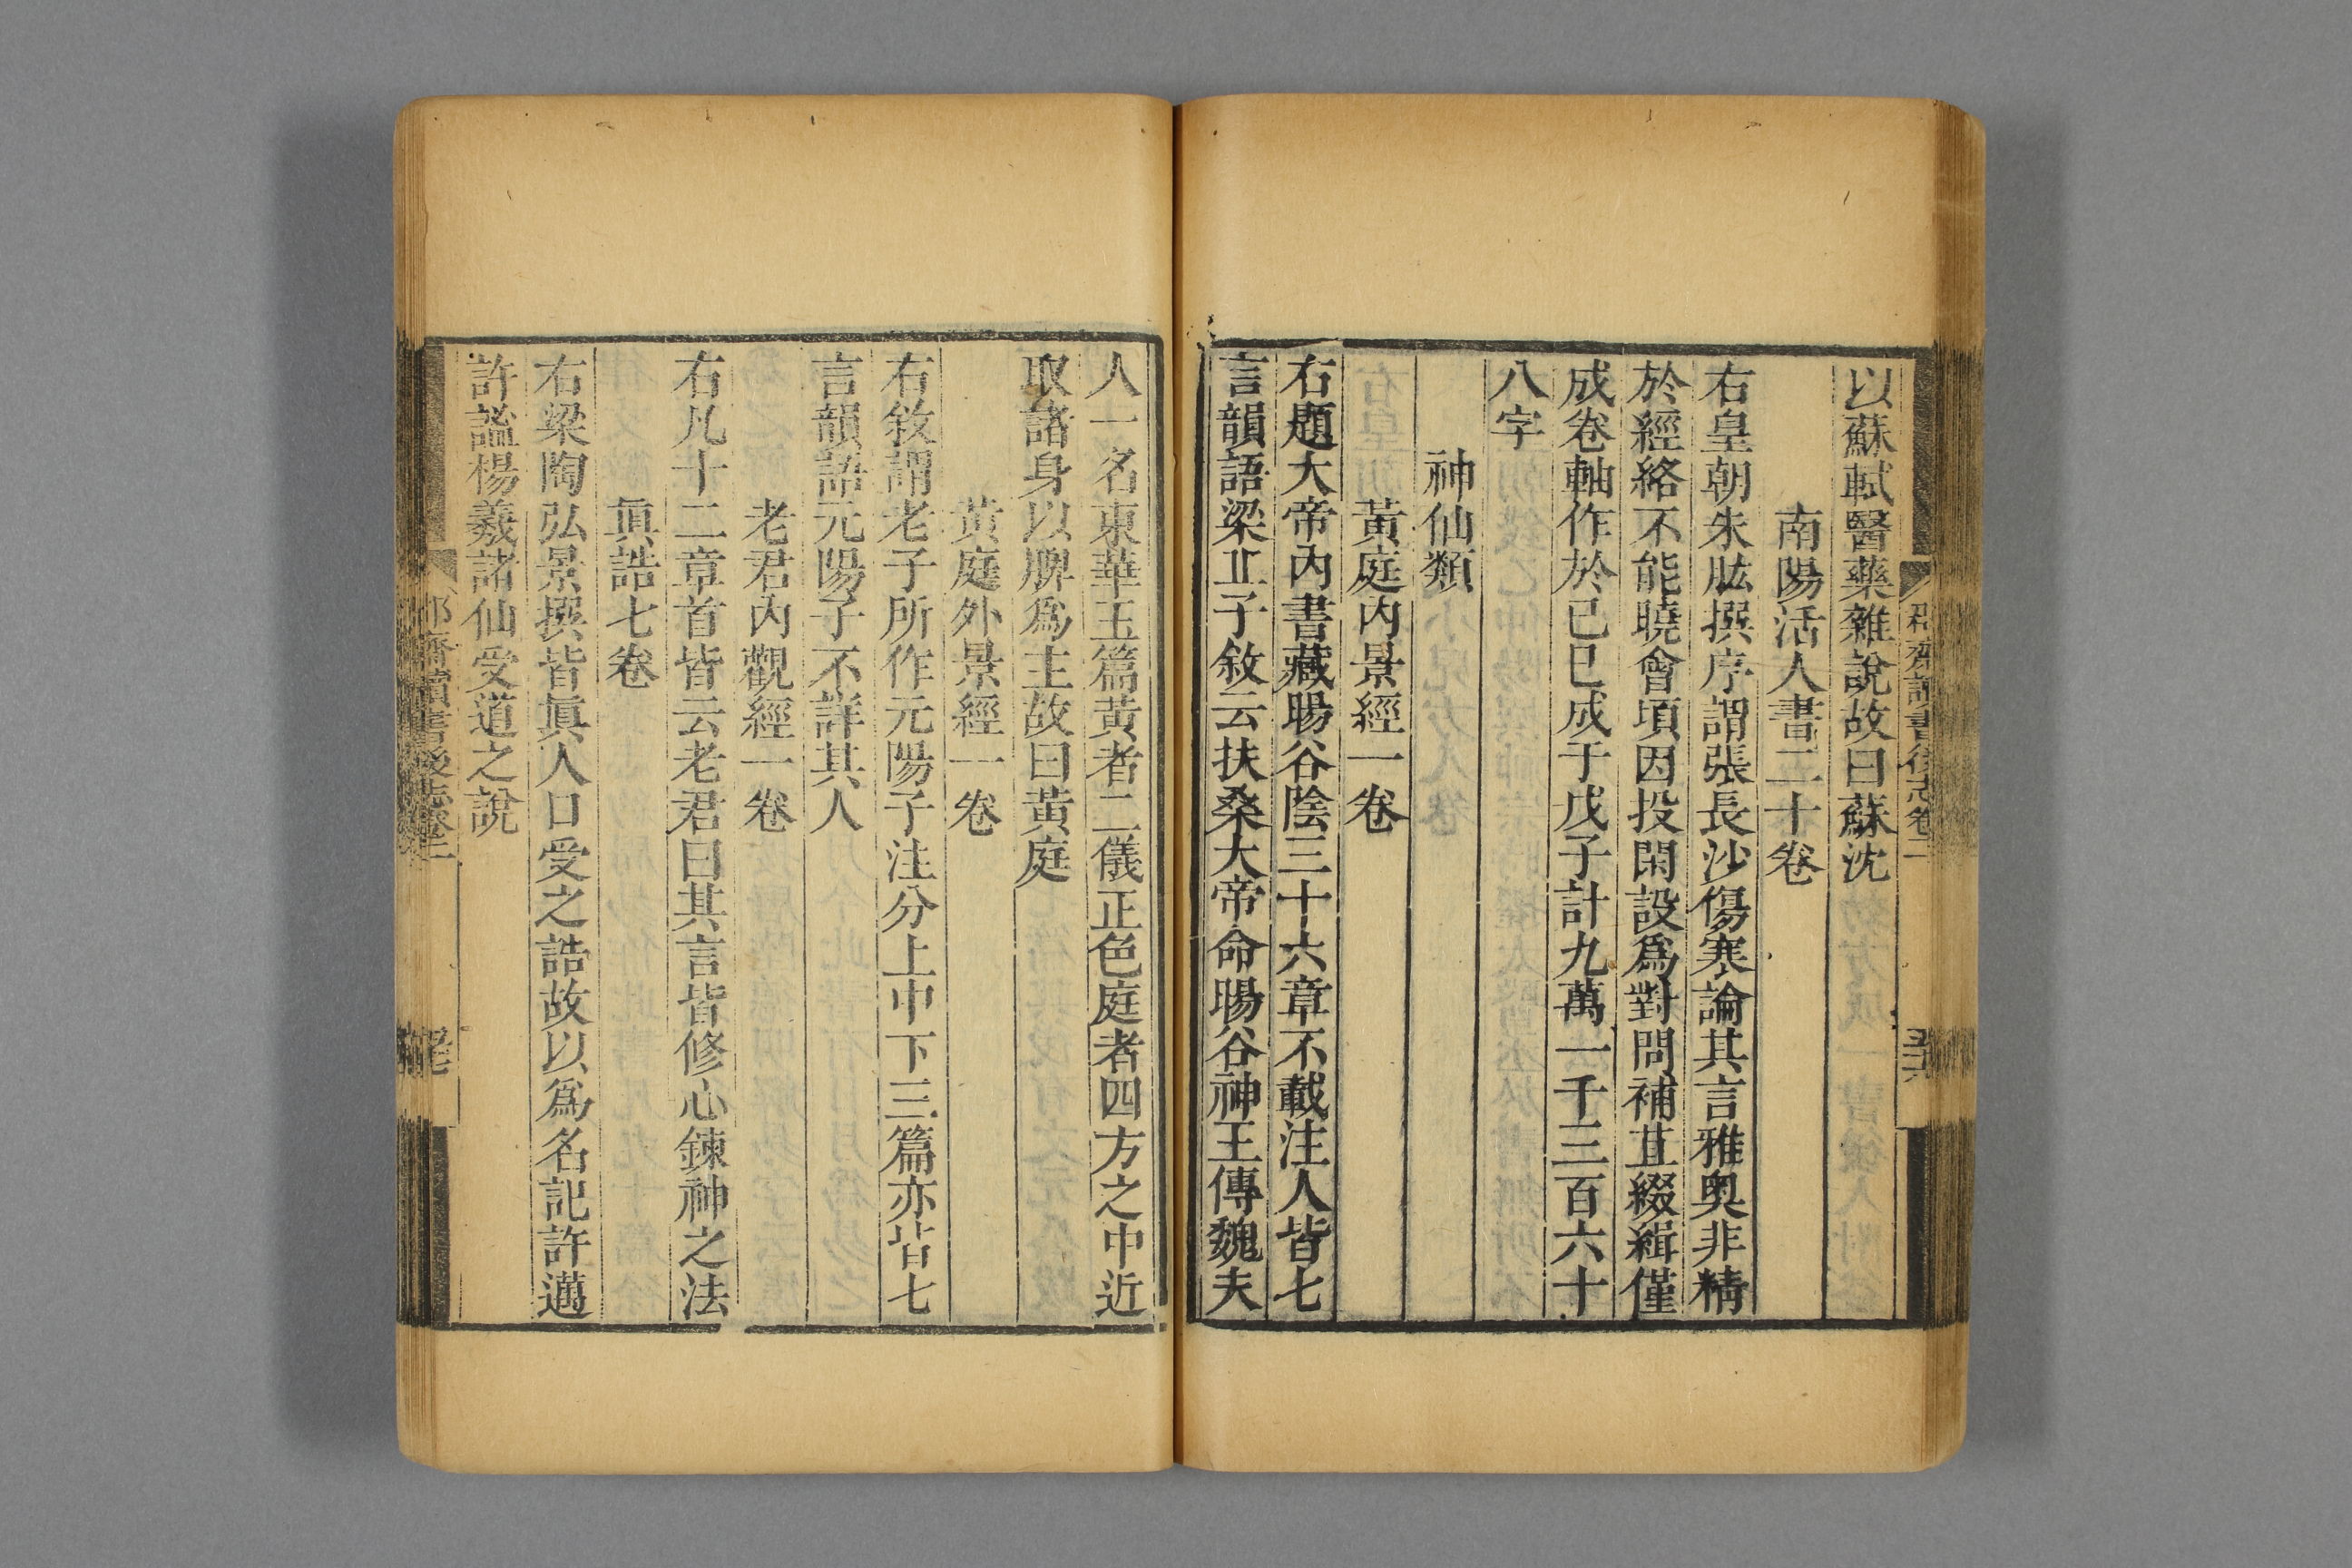 以蘇軾醫藥雜說故曰蘇沈
南陽活人書二十卷
右皇朝朱肱撰序謂張長沙傷寒論其言雅奥非精
於經絡不能曉會頃因投閑設爲對問補苴綴緝僅
成卷軸作於已巳成于戊子計九萬一千三百六十
八字
神仙類
黃庭内景經一卷
右題大帝內書藏暘谷陰三十六章不載注人皆七
言韻語梁丘子敘云扶桑大帝命暘谷神王傳魏夫
人一名東華玉篇黃者二儀正色庭者四方之中近
取諸身以脾爲主故曰黃庭
黃庭外景經一卷
右敘謂老子所作元陽子注分上中下三篇亦皆七
言韻語元陽子不詳其人
老君內觀經一卷
右凡十二章首皆云老君曰其言皆修心鍊神之法
眞誥七卷
右梁陶弘景撰皆眞人口受之誥故以爲名記許邁
許謐楊羲諸仙受道之說